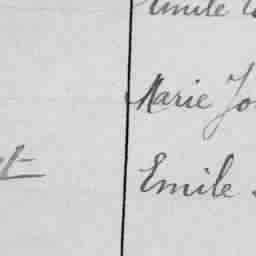 Emile
Marie Jo
Emile